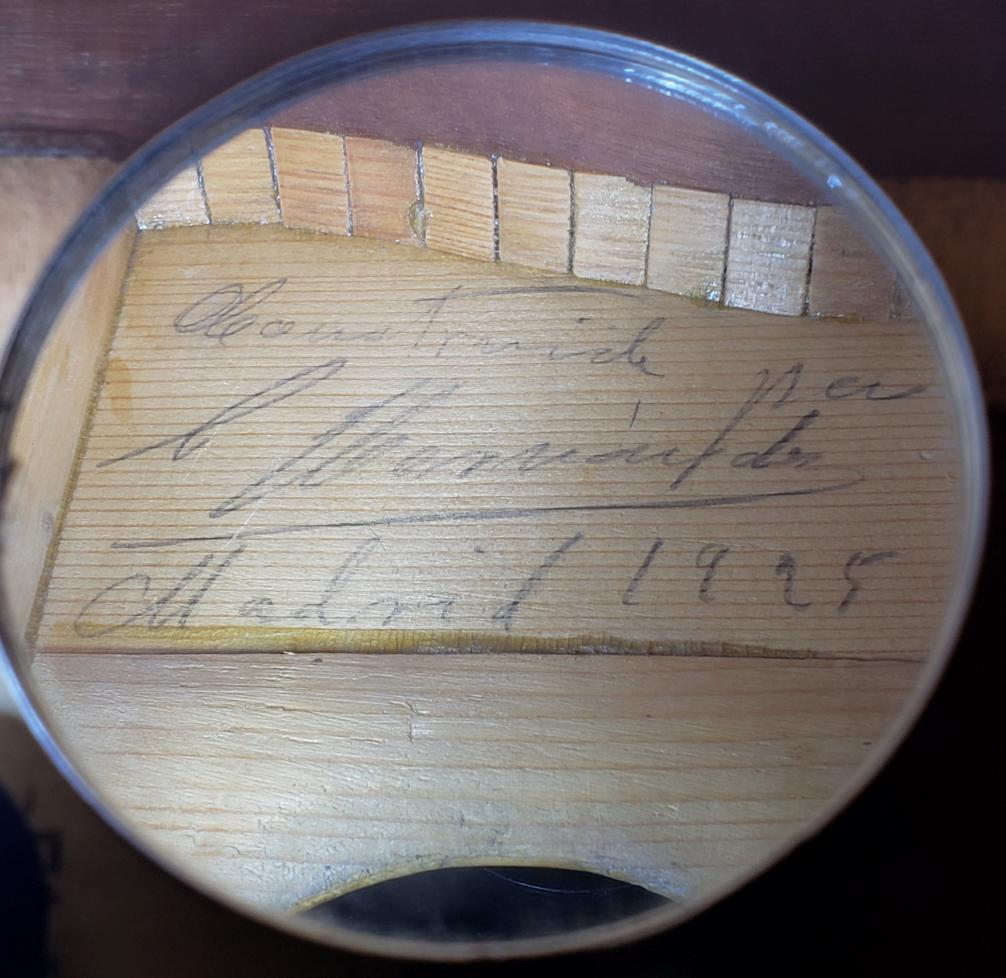 Construida
por
S Hernández
Madrid 1925